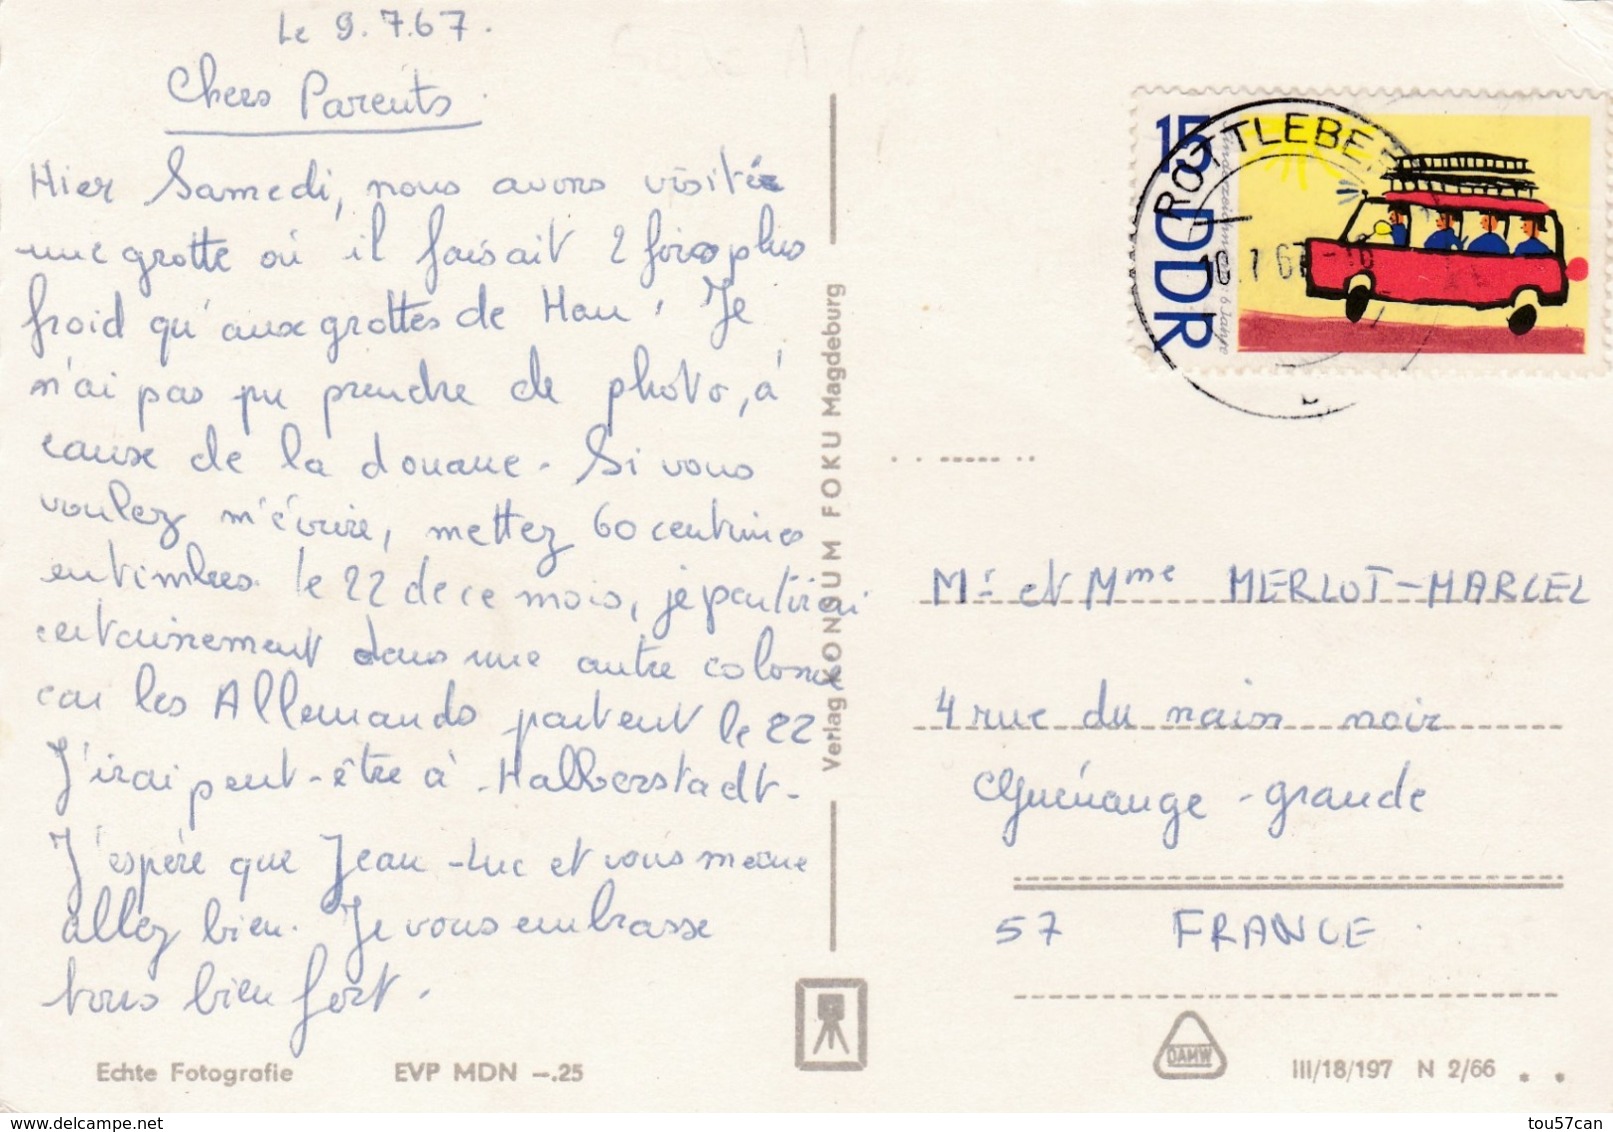 Le 9.7.67.
Chers Parents
Hier Samedi, nous avons visité
une grotte où il faisait 2 fois plus
froid qu'aux grottes de Han. Je
n'ai pas pu prendre de photo, à
cause de la douane. Si vous
voulez m'écrire, mettez 60 centimes
en timbres. le 22 de ce mois, je partirai
certainement dans une autre colonie
car les Allemands partent le 22
J'irai peut-être à Halberstadt.
J'espère que Jean-Luc et vous même
allez bien. Je vous embrasse
tous bien fort.
Echte Fotografie EVP MDN -.25
Verlag KONSUM FOKU Magdeburg
15 DDR
ROTTLEBE
10.7.67-16
Mr et Mme MERLOT-MARCEL
4 rue du nain noir
Guénange-grande
57 FRANCE
DAMW
III/18/197 N 2/66
tou57can